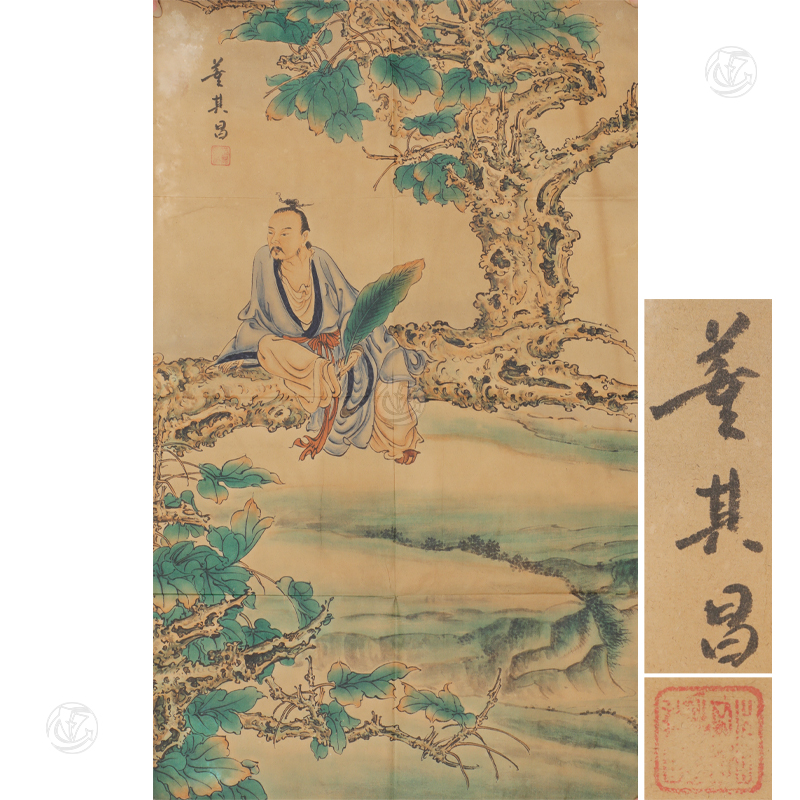 董其昌
董其昌